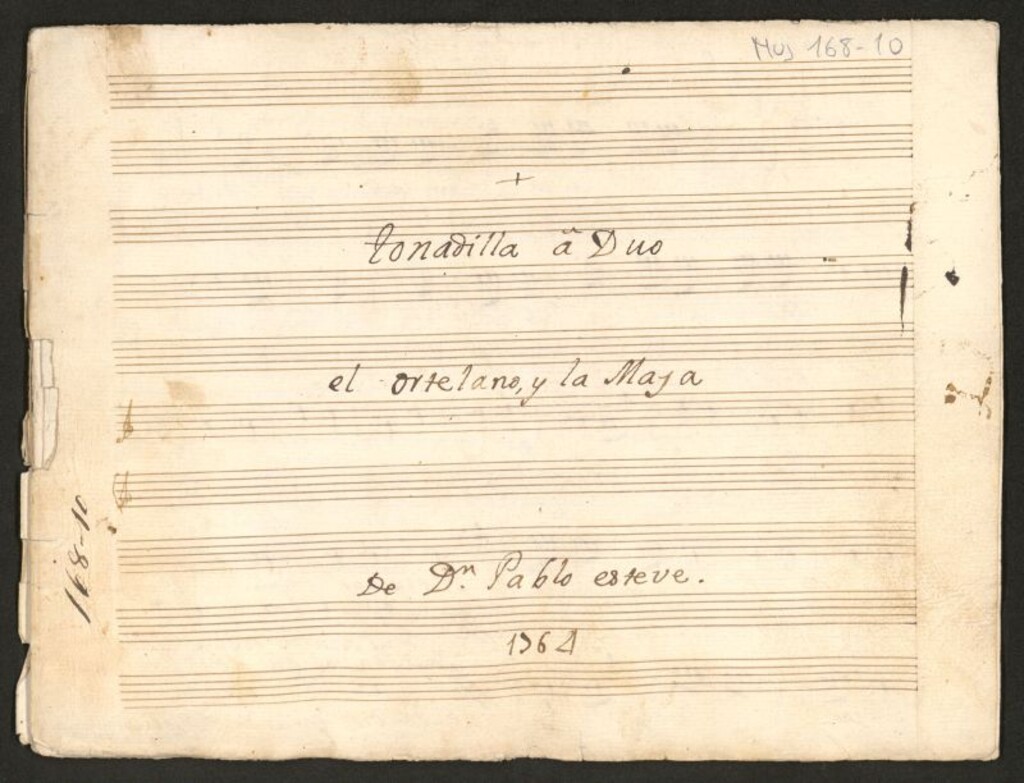 Mus 168-10
+
tonadilla â Duo
el ortelano, y la Maja
De Dn. Pablo esteve.
1764
168-10